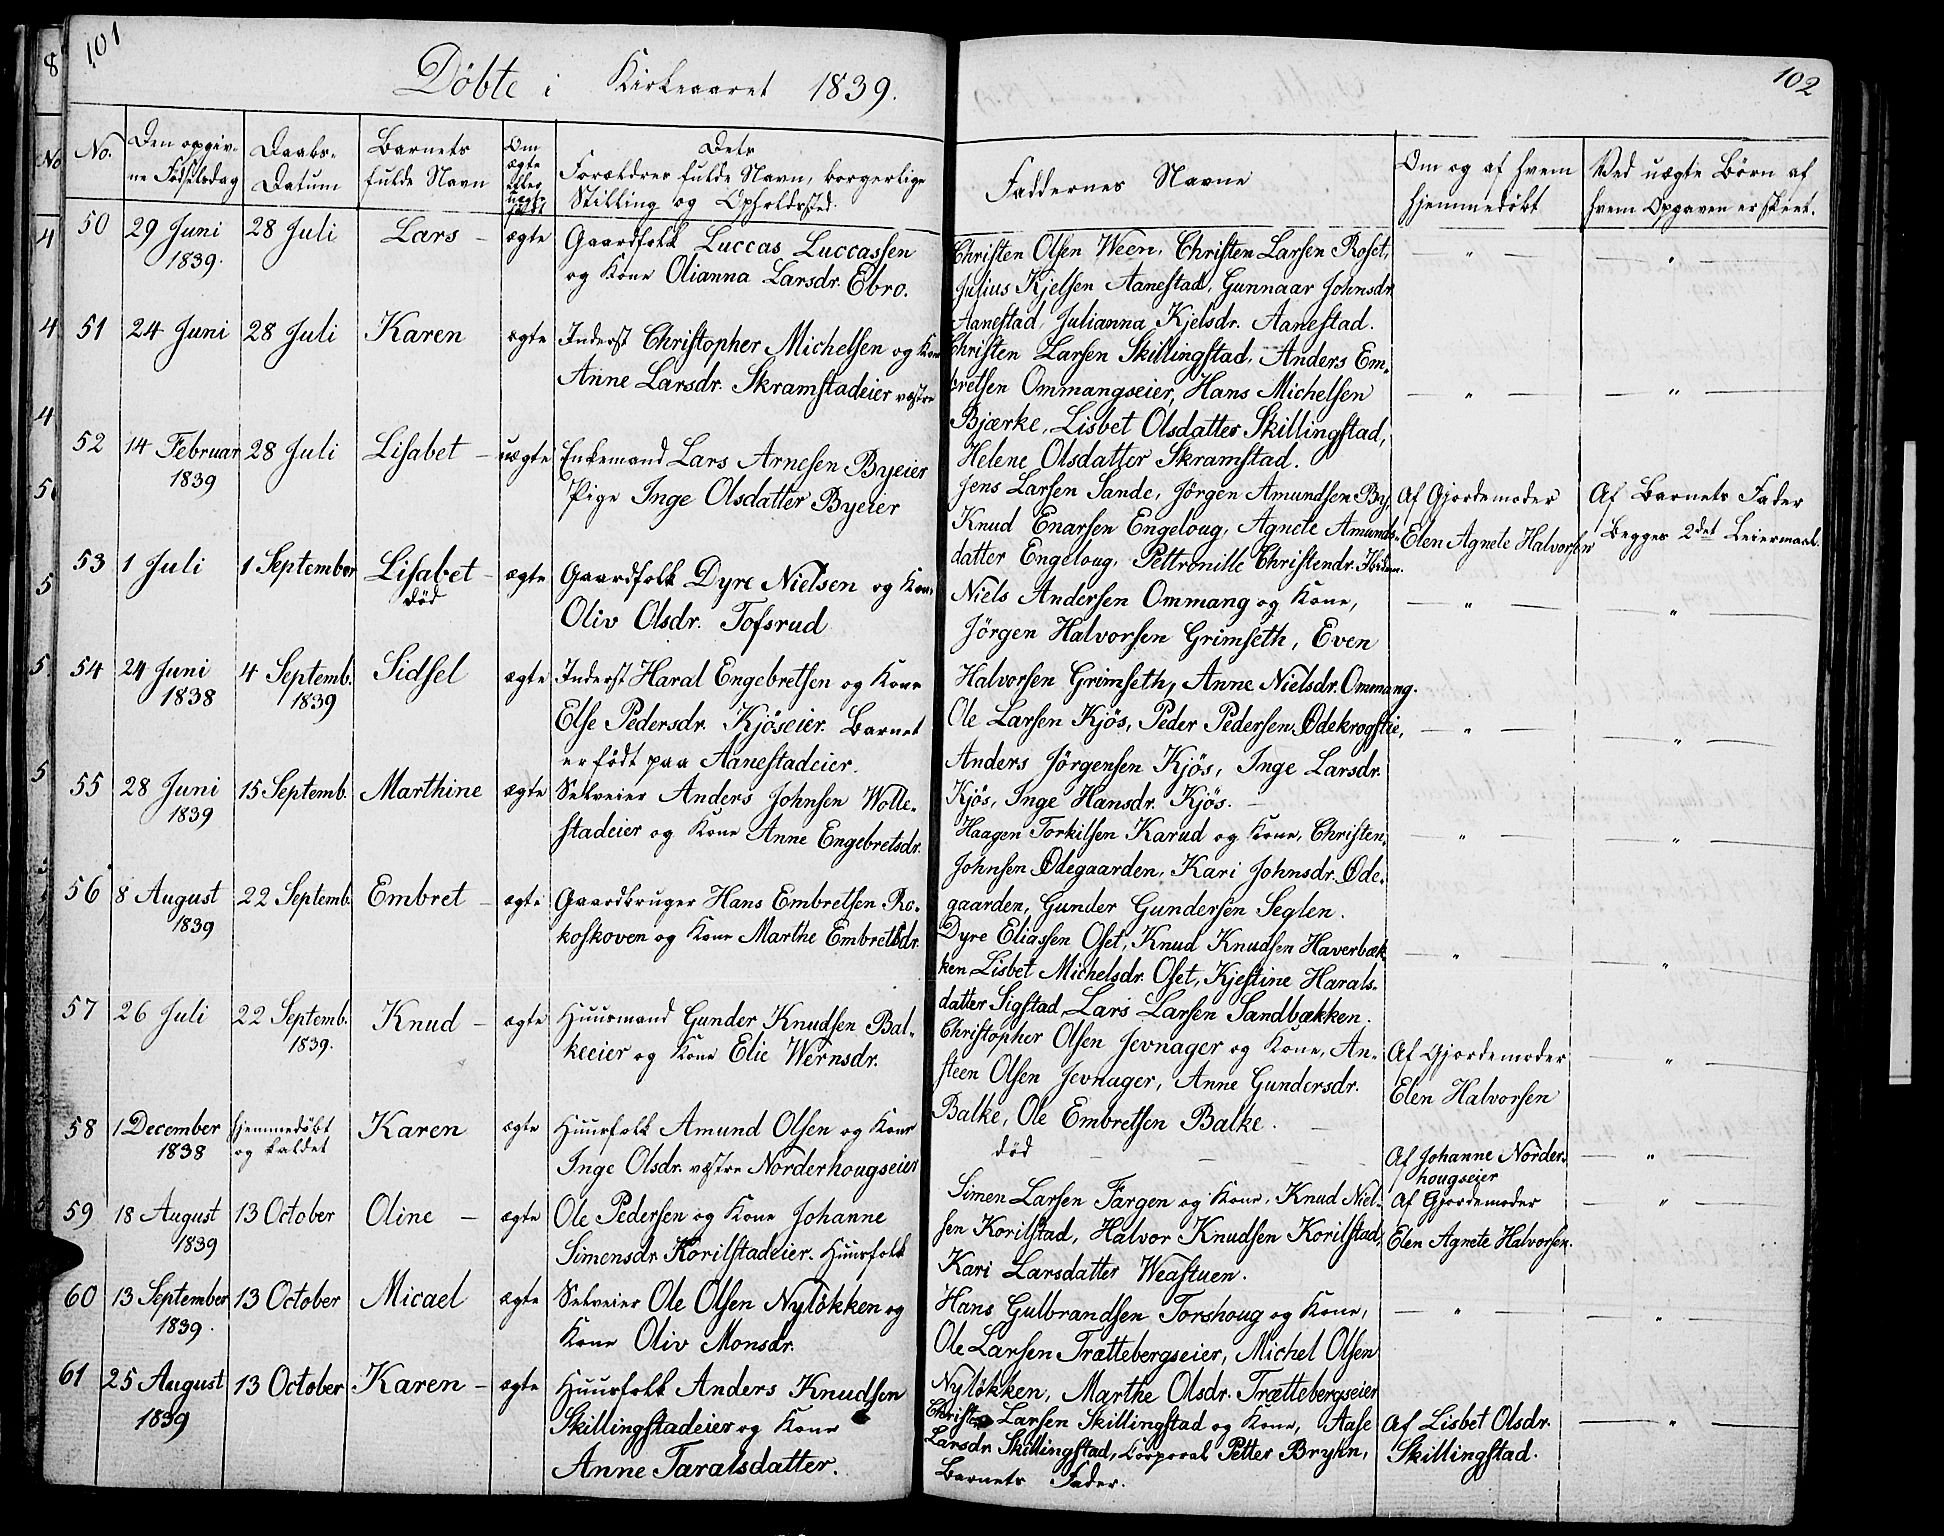 101
Döbte i Kirkeaaret 1839.
No.
Den opgiv-
ne Fødselsdag
Daabs-
Datum
Barnets
fulde Navn
Om
ægte
eller
uægte
født
Dets
Forældres fulde Navn, borgerlige
Stilling og Opholdssted.
50
29 Juni
1839.
28 Juli
Lars
ægte
Gaardfolk Luccas Luccassen
og Kone Olianna Larsdr. Ebro.
51
24 Juni
28 Juli
Karen
ægte
Inderst Christopher Michelsen og Kone
Anne Larsdr. Skramstadeier vestre
52
14 Februar
1839
28 Juli
Lisabet
uægte
Enkemand Lars Arnesen Byeier
Pige Inge Olsdatter Byeier
53
1 Juli
1 September
Lisabet
död
ægte
Gaardfolk Dyre Nielsen og Kone
Oliv Olsdr. Tofsrud
54
24 Juni
1838
4 Septemb.
1839
Sidsel
ægte
Inderst Haral Engebretsen og Kone
Else Pedersdr. Kjöseier. Barnet
er födt paa Aanestadeier.
55
28 Juni
1839
15 Septemb.
Marthine
ægte
Selveier Anders Johnsen Wolle-
stadeier og Kone Anne Engebretsdr.
56
8 August
1839
22 Septemb.
Embret
ægte
Gaardbruger Hans Embretsen Ro-
koskoven og Kone Marthe Embretsdr.
57
26 Juli
22 Septemb.
1839.
Knud
ægte
Huusmand Gunder Knudsen Bal-
keeier og Kone Elie Wernsdr.
58
1 December
1838
hjemmedöbt
og kaldet
Karen
ægte
Huusfolk Amund Olsen og Kone
Inge Olsdr. vestre Norderhougseier
59
18 August
1839
13 October
Oline
ægte
Ole Pedersen og Kone Johanne
Simensdr. Korilstadeier. Huusfolk
60
13 September
1839.
13 October
Micael
ægte
Selveier Ole Olsen Nylökken og
Kone Oliv Monsdr.
61
25 August
1839
13 October
Karen
ægte
Huusfolk Anders Knudsen
Skillingstadeier og Kone
Anne Taralsdatter.
102
Faddernes Navne
Om og af hvem
hjemmedøbt
Ved uægte Børn af
hvem Opgaven er skeet.
Christen Olsen Ween, Christen Larsen Roset,
Julius Kjelsen Aanestad, Gunnaar Johnsdr.
Aanestad, Julianna Kjelsdr. Aanestad.
Christen Larsen Skillingstad, Anders Em-
bretsen Ommangseier, Hans Michelsen
Bjærke, Lisbet Olsdatter Skillingstad,
Helene Olsdatter Skramstad.
Jens Larsen Sande, Jörgen Amundsen By,
Knud Enarsen Engeloug, Agnete Amunds-
datter Engeloug, Pettronille Christendr. Ibidem.
Af Gjordemoder
Elen Agnete Halvorsen
Af Barnets Fader
Begges 2det Leiermaal.
Niels Andersen Ommang og Kone,
Jörgen Halvorsen Grimseth, Even
Halvorsen Grimseth, Anne Nielsdr. Ommang.
Ole Larsen Kjös, Peder Pedersen Ødekrogstie,
Anders Jörgensen Kjös, Inge Larsdr.
Kjös, Inge Hansdr. Kjös.
Haagen Torkilsen Karud og Kone, Christen
Johnsen Ødegaarden, Kari Johnsdr. Øde-
gaarden, Gunder Gundersen Seglen.
Dyre Eliassen Oset, Knud Knudsen Haverbæk-
ken Lisbet Michelsdr. Oset, Kjestine Harals-
datter Sigstad, Lars Larsen Sandbækken.
Christopher Olsen Jevnager og Kone, An-
steen Olsen Jevnager, Anne Gundersdr.
Balke, Ole Embretsen Balke.
Af Gjordemoder
Elen Halvorsen
död
Af Johanne Norder-
hougseier
Simen Larsen Fargen og Kone, Knud Niel-
sen Korilstad, Halvor Knudsen Korilstad,
Kari Larsdatter Weastuen.
Af Gjordemoder
Elen Agnete Halvorsen.
Hans Gulbrandsen Torshoug og Kone,
Ole Larsen Trættebergseier, Michel Olsen
Nylökken, Marthe Olsdr. Trættebergseier
Christen Larsen Skillingstad og Kone, Aase
Larsdr. Skillingstad, Corporal Petter Bryhn,
Barnets Fader.
Af Lisbet Olsdr.
Skillingstad.